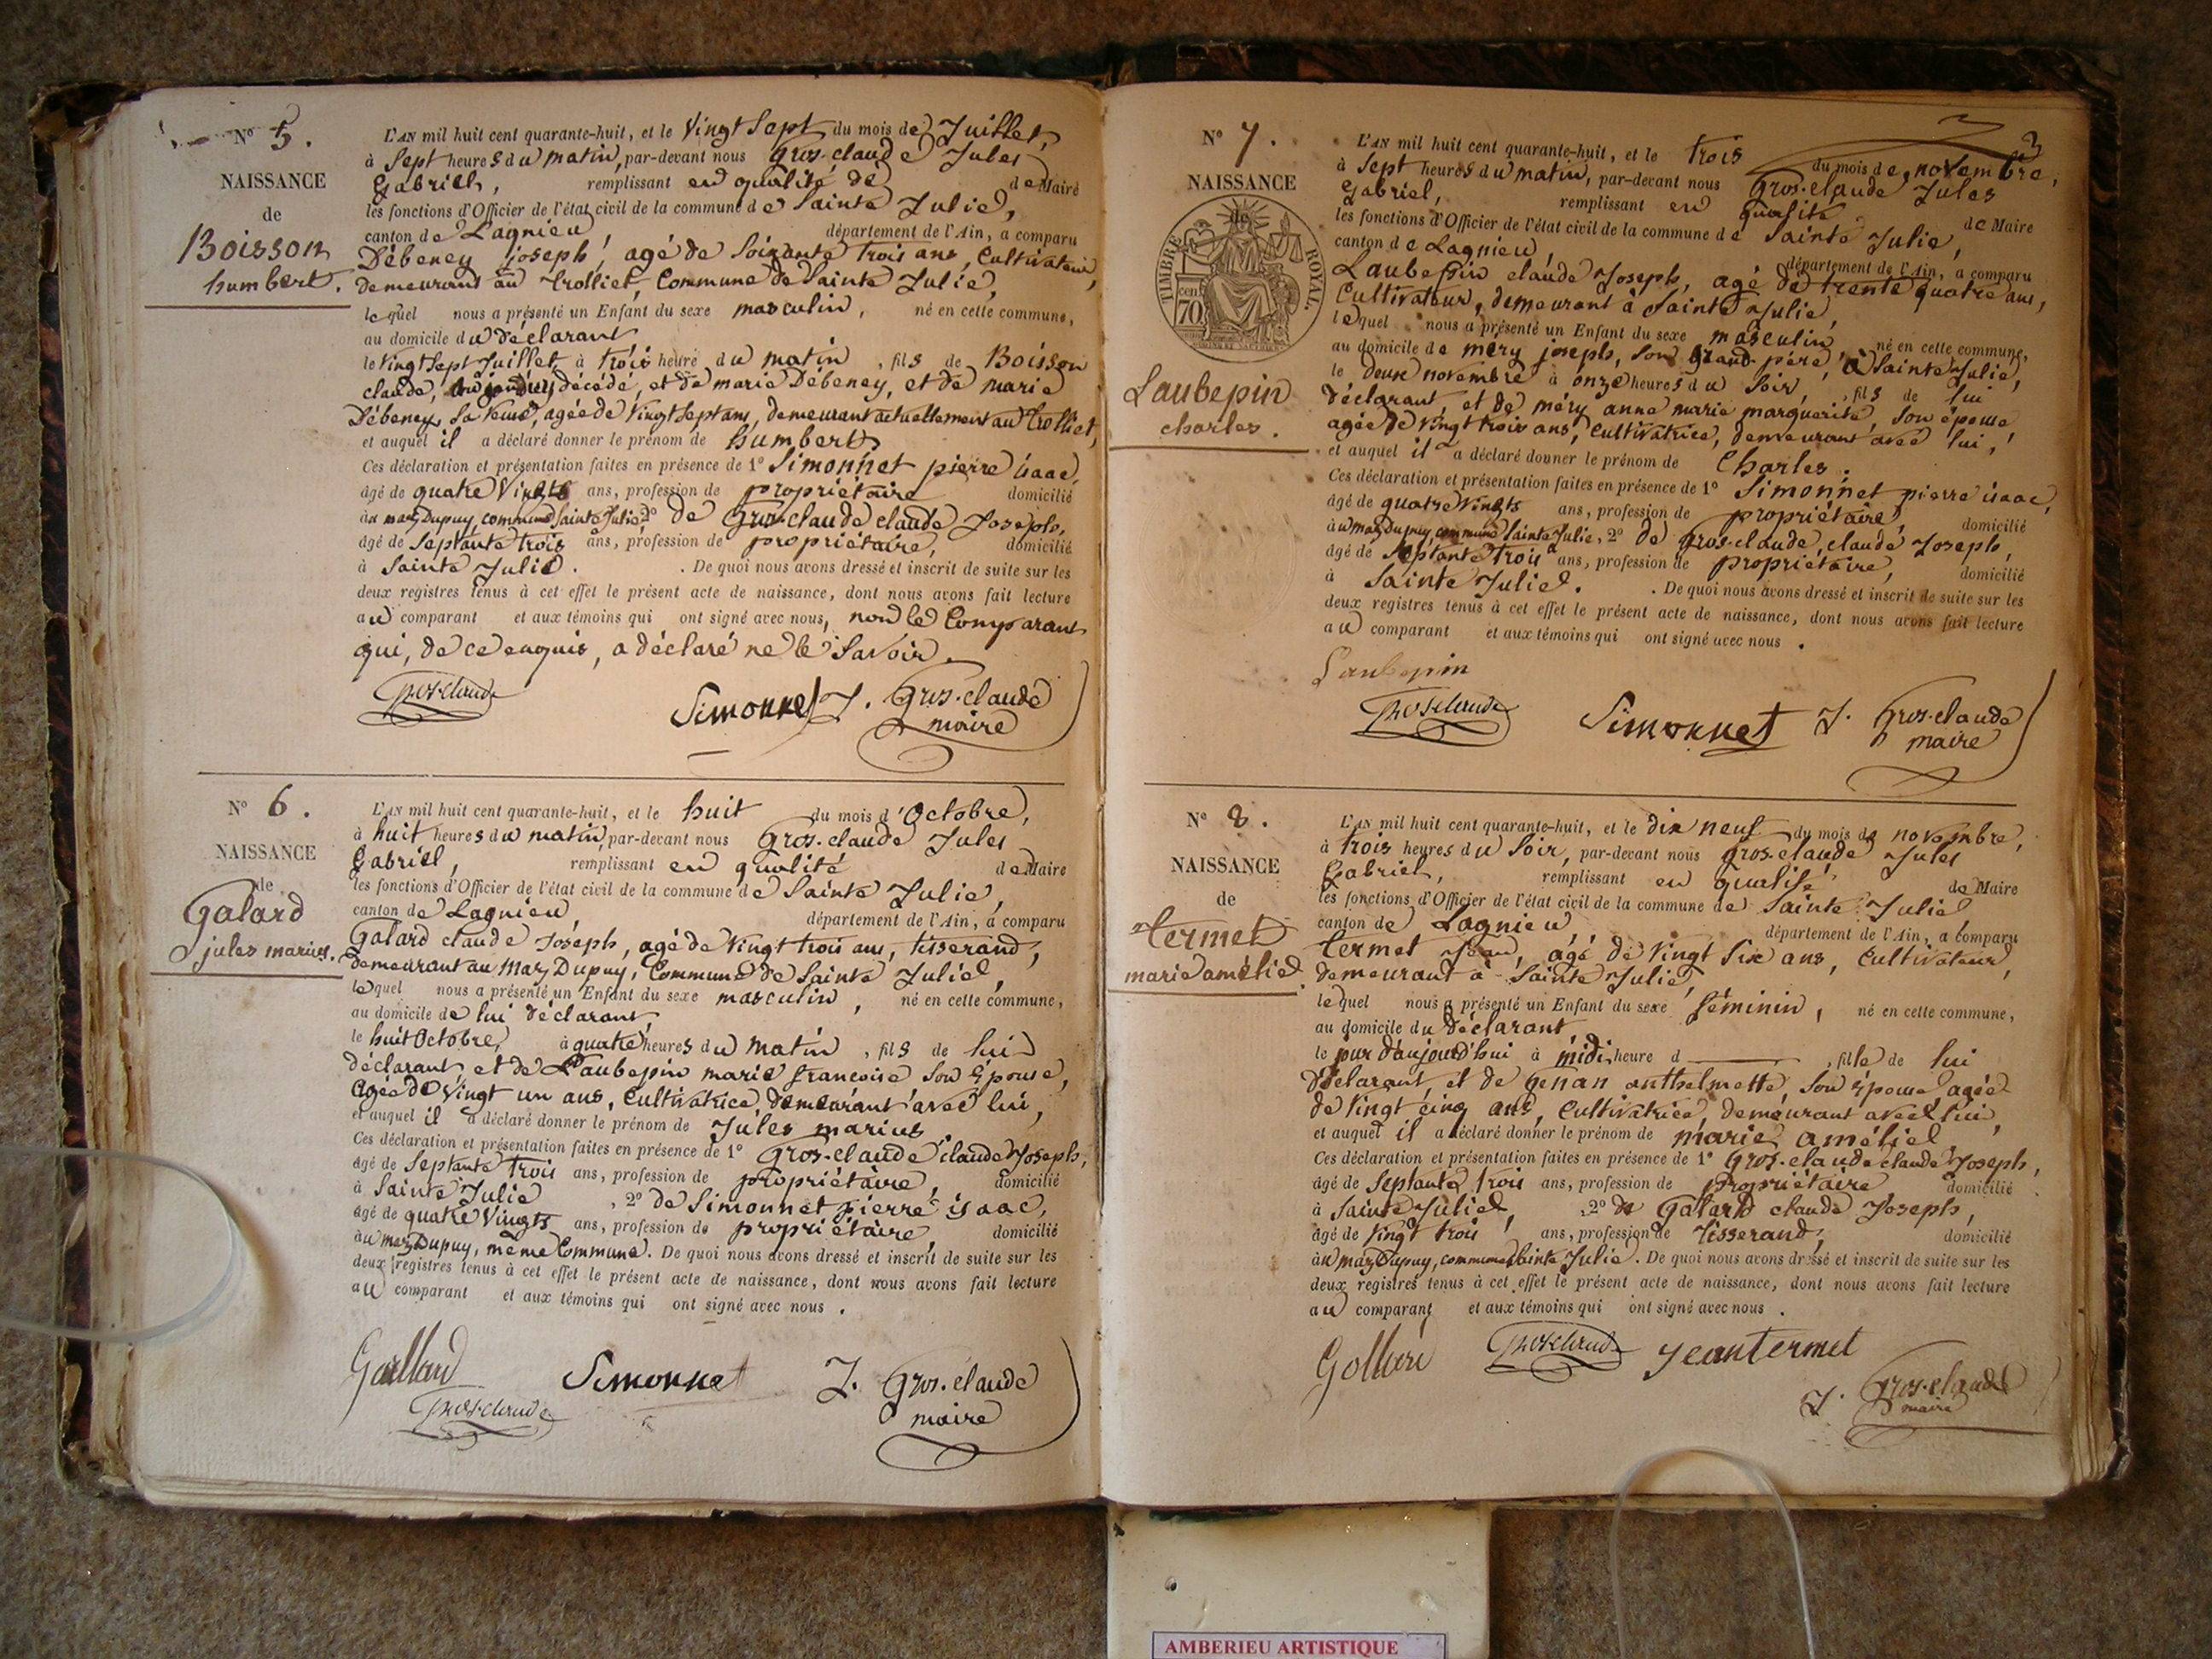 N° 5.
NAISSANCE
de
Boisson
humbert.
L'AN mil huit cent quarante-huit, et le Vingt Sept du mois de Juillet,
à Sept heures du matin, par-devant nous Gros-claude Jules
Gabriel, remplissant en qualité de de Maire
les fonctions d'Officier de l'état civil de la commune de Sainte Julie,
canton de Lagnieu, département de l'Ain, a comparu
Débeney joseph, agé de Soixante trois ans, Cultivateur,
demeurant au Trolliet, Commune de Sainte Julie,
lequel nous a présenté un Enfant du sexe masculin, né en cette commune,
au domicile du déclarant
le Vingt Sept Juillet, à trois heure du matin, fils de Boisson
claude, décédé, et de marie Débeney, et de marie
Débeney, Sa Veuve, agée de Vingt Sept ans, demeurant actuellement au Trolliet,
et auquel il a déclaré donner le prénom de humbert
Ces déclaration et présentation faites en présence de 1° Simonnet pierre isaac,
âgé de quatre Vingts ans, profession de propriétaire domicilié
au marz Dupuy, commune Sainte Julie, 2° de Gros-claude claude Joseph,
âgé de Septante trois ans, profession de propriétaire, domicilié
à Sainte Julie. . De quoi nous avons dressé et inscrit de suite sur les
deux registres tenus à cet effet le présent acte de naissance, dont nous avons fait lecture
au comparant et aux témoins qui ont signé avec nous, non le Comparant
qui, de ce enquis, a déclaré ne le Savoir.
Grosclaude Simonnet J. Gros-claude
maire
N° 6.
NAISSANCE
de
Galard
jules marius.
L'AN mil huit cent quarante-huit, et le huit du mois d'Octobre,
à huit heures du matin, par-devant nous Gros-claude Jules
Gabriel, remplissant en qualité de Maire
les fonctions d'Officier de l'état civil de la commune de Sainte Julie,
canton de Lagnieu, département de l'Ain, a comparu
Galard claude Joseph, agé de Vingt trois ans, tisserand,
demeurant au Marz Dupuy, Commune de Sainte Julie,
lequel nous a présenté un Enfant du sexe masculin, né en cette commune,
au domicile de lui déclarant
le huit Octobre, à quatre heures du matin, fils de lui
déclarant, et de Laubepin marie françoise Son Épouse,
agée de Vingt un ans, Cultivatrice, demeurant avec lui,
et auquel il a déclaré donner le prénom de Jules marius
Ces déclaration et présentation faites en présence de 1° Gros-claude claude Joseph,
âgé de Septante trois ans, profession de propriétaire, domicilié
à Sainte Julie, 2° de Simonnet pierre isaac,
âgé de quatre Vingts ans, profession de propriétaire, domicilié
au marz Dupuy, même Commune. De quoi nous avons dressé et inscrit de suite sur les
deux registres tenus à cet effet le présent acte de naissance, dont nous avons fait lecture
au comparant et aux témoins qui ont signé avec nous.
Gallard Simonnet J. Gros-claude
Grosclaude maire
3
N° 7.
NAISSANCE
de
TIMBRE ROYAL
70
Laubepin
charles.
L'AN mil huit cent quarante-huit, et le trois du mois de novembre,
à Sept heures du matin, par-devant nous Gros-claude Jules
Gabriel, remplissant en qualité de Maire
les fonctions d'Officier de l'état civil de la commune de Sainte Julie,
canton de Lagnieu, département de l'Ain, a comparu
Laubepin claude Joseph, agé de trente quatre ans,
Cultivateur, demeurant à Sainte Julie,
lequel nous a présenté un Enfant du sexe masculin, né en cette commune,
au domicile de méry joseph, son grand père, à Sainte Julie,
le deux novembre à onze heures du Soir, fils de lui
déclarant, et de méry anne marie marguerite, Son épouse
agée de Vingt trois ans, Cultivatrice, demeurant avec lui,
et auquel il a déclaré donner le prénom de Charles.
Ces déclaration et présentation faites en présence de 1° Simonnet pierre isaac,
âgé de quatre Vingts ans, profession de propriétaire, domicilié
au marz Dupuy, commune Sainte Julie, 2° de Gros-claude, claude Joseph,
âgé de Septante trois ans, profession de propriétaire, domicilié
à Sainte Julie. . De quoi nous avons dressé et inscrit de suite sur les
deux registres tenus à cet effet le présent acte de naissance, dont nous avons fait lecture
au comparant et aux témoins qui ont signé avec nous.
Laubepin
Grosclaude Simonnet J. Gros-claude
maire
N° 8.
NAISSANCE
de
Termet
marie amélie.
L'AN mil huit cent quarante-huit, et le dix neuf du mois de novembre,
à trois heures du Soir, par-devant nous Gros-claude Jules
Gabriel, remplissant en qualité de Maire
les fonctions d'Officier de l'état civil de la commune de Sainte Julie
canton de Lagnieu, département de l'Ain, a comparu
Termet Jean, agé de Vingt Six ans, Cultivateur,
demeurant à Sainte Julie,
lequel nous a présenté un Enfant du sexe féminin, né en cette commune,
au domicile du Déclarant
le jour d'aujourd'hui à midi heure d , fille de lui
Déclarant, et de Genan anthelmette, Son Épouse, agée
de Vingt cinq ans, Cultivatrice, demeurant avec lui,
et auquel il a déclaré donner le prénom de marie amélie
Ces déclaration et présentation faites en présence de 1° Gros-claude claude Joseph,
âgé de Septante trois ans, profession de propriétaire domicilié
à Sainte Julie, 2° de Galard claude Joseph,
âgé de Vingt trois ans, profession de Tisserand, domicilié
au marz Dupuy, commune Sainte Julie. De quoi nous avons dressé et inscrit de suite sur les
deux registres tenus à cet effet le présent acte de naissance, dont nous avons fait lecture
au comparant et aux témoins qui ont signé avec nous.
Gallard Grosclaude Jean termet
J. Gros-claude
maire
AMBERIEU ARTISTIQUE